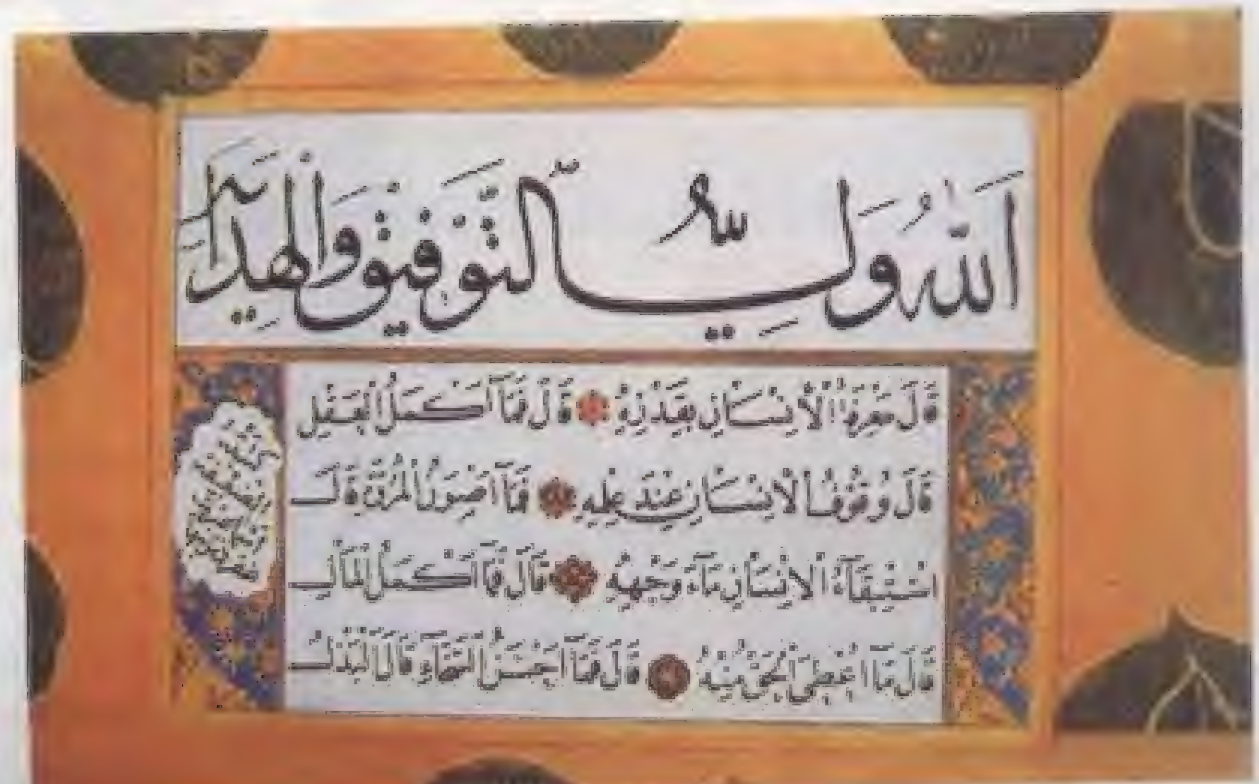 اَللّٰهُ وَلِيُّ التَّوْفِيْقِ وَالْهِدَايَةِ
قَالَ مَعْرِفَةُ الْاِنْسَانِ بِقَدْرِهِ قَالَ فَمَا اَكْمَلُ الْعَقْلِ
قَالَ وُقُوْفُ الْاِنْسَانِ عِنْدَ عِلْمِهِ فَمَا اَصْوَنُ الْمُرُوَّةِ قَالَ
اسْتِبْقَآءُ الْاِنْسَانِ مَآءَ وَجْهِهِ قَالَ فَمَا اَكْمَلُ الْمَالِ
قَالَ مَا اُعْطِيَ الْحَقُّ مِنْهُ قَالَ فَمَا اَحْسَنُ السَّخَآءِ قَالَ الْبَذْلُ